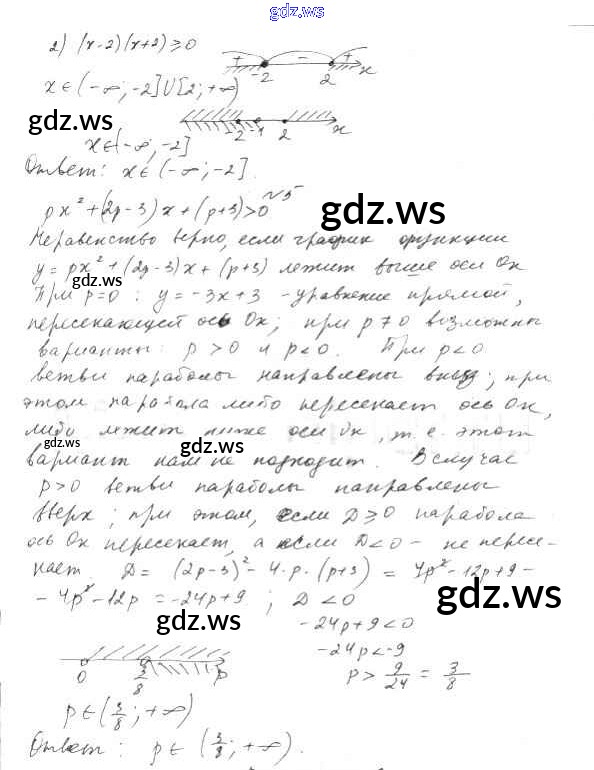 gdz.ws
2) (x-2)(x+2)≥0
+ - +
-2 2 x
x∈(-∞;-2]U[2;+∞)
gdz.ws
-2 -1 2 x
x∈(-∞;-2]
Ответ: x∈(-∞;-2].
№5
px²+(2p-3)x+(p+3)>0
gdz.ws
Неравенство верно, если график функции
y=px²+(2p-3)x+(p+3) лежит выше оси Ox
gdz.ws
При p=0: y=-3x+3 - уравнение прямой,
пересекающей ось Ox; при p≠0 возможны
варианты: p>0 и p<0. При p<0
ветви параболы направлены вниз; при
этом парабола либо пересекает ось Ox,
либо лежит ниже оси Ox, т.е. этот
gdz.ws
gdz.ws
вариант нам не подходит. В случае
p>0 ветви параболы направлены
вверх; при этом, если D≥0 парабола
ось Ox пересекает, а если D<0 - не пересе-
кает. D=(2p-3)²-4·p·(p+3)=4p²-12p+9-
-4p²-12p=-24p+9; D<0
gdz.ws
gdz.ws
-24p+9<0
-24p<-9
p>9/24=3/8
0 3/8 p
p∈(3/8;+∞)
gdz.ws
Ответ: p∈(3/8;+∞).